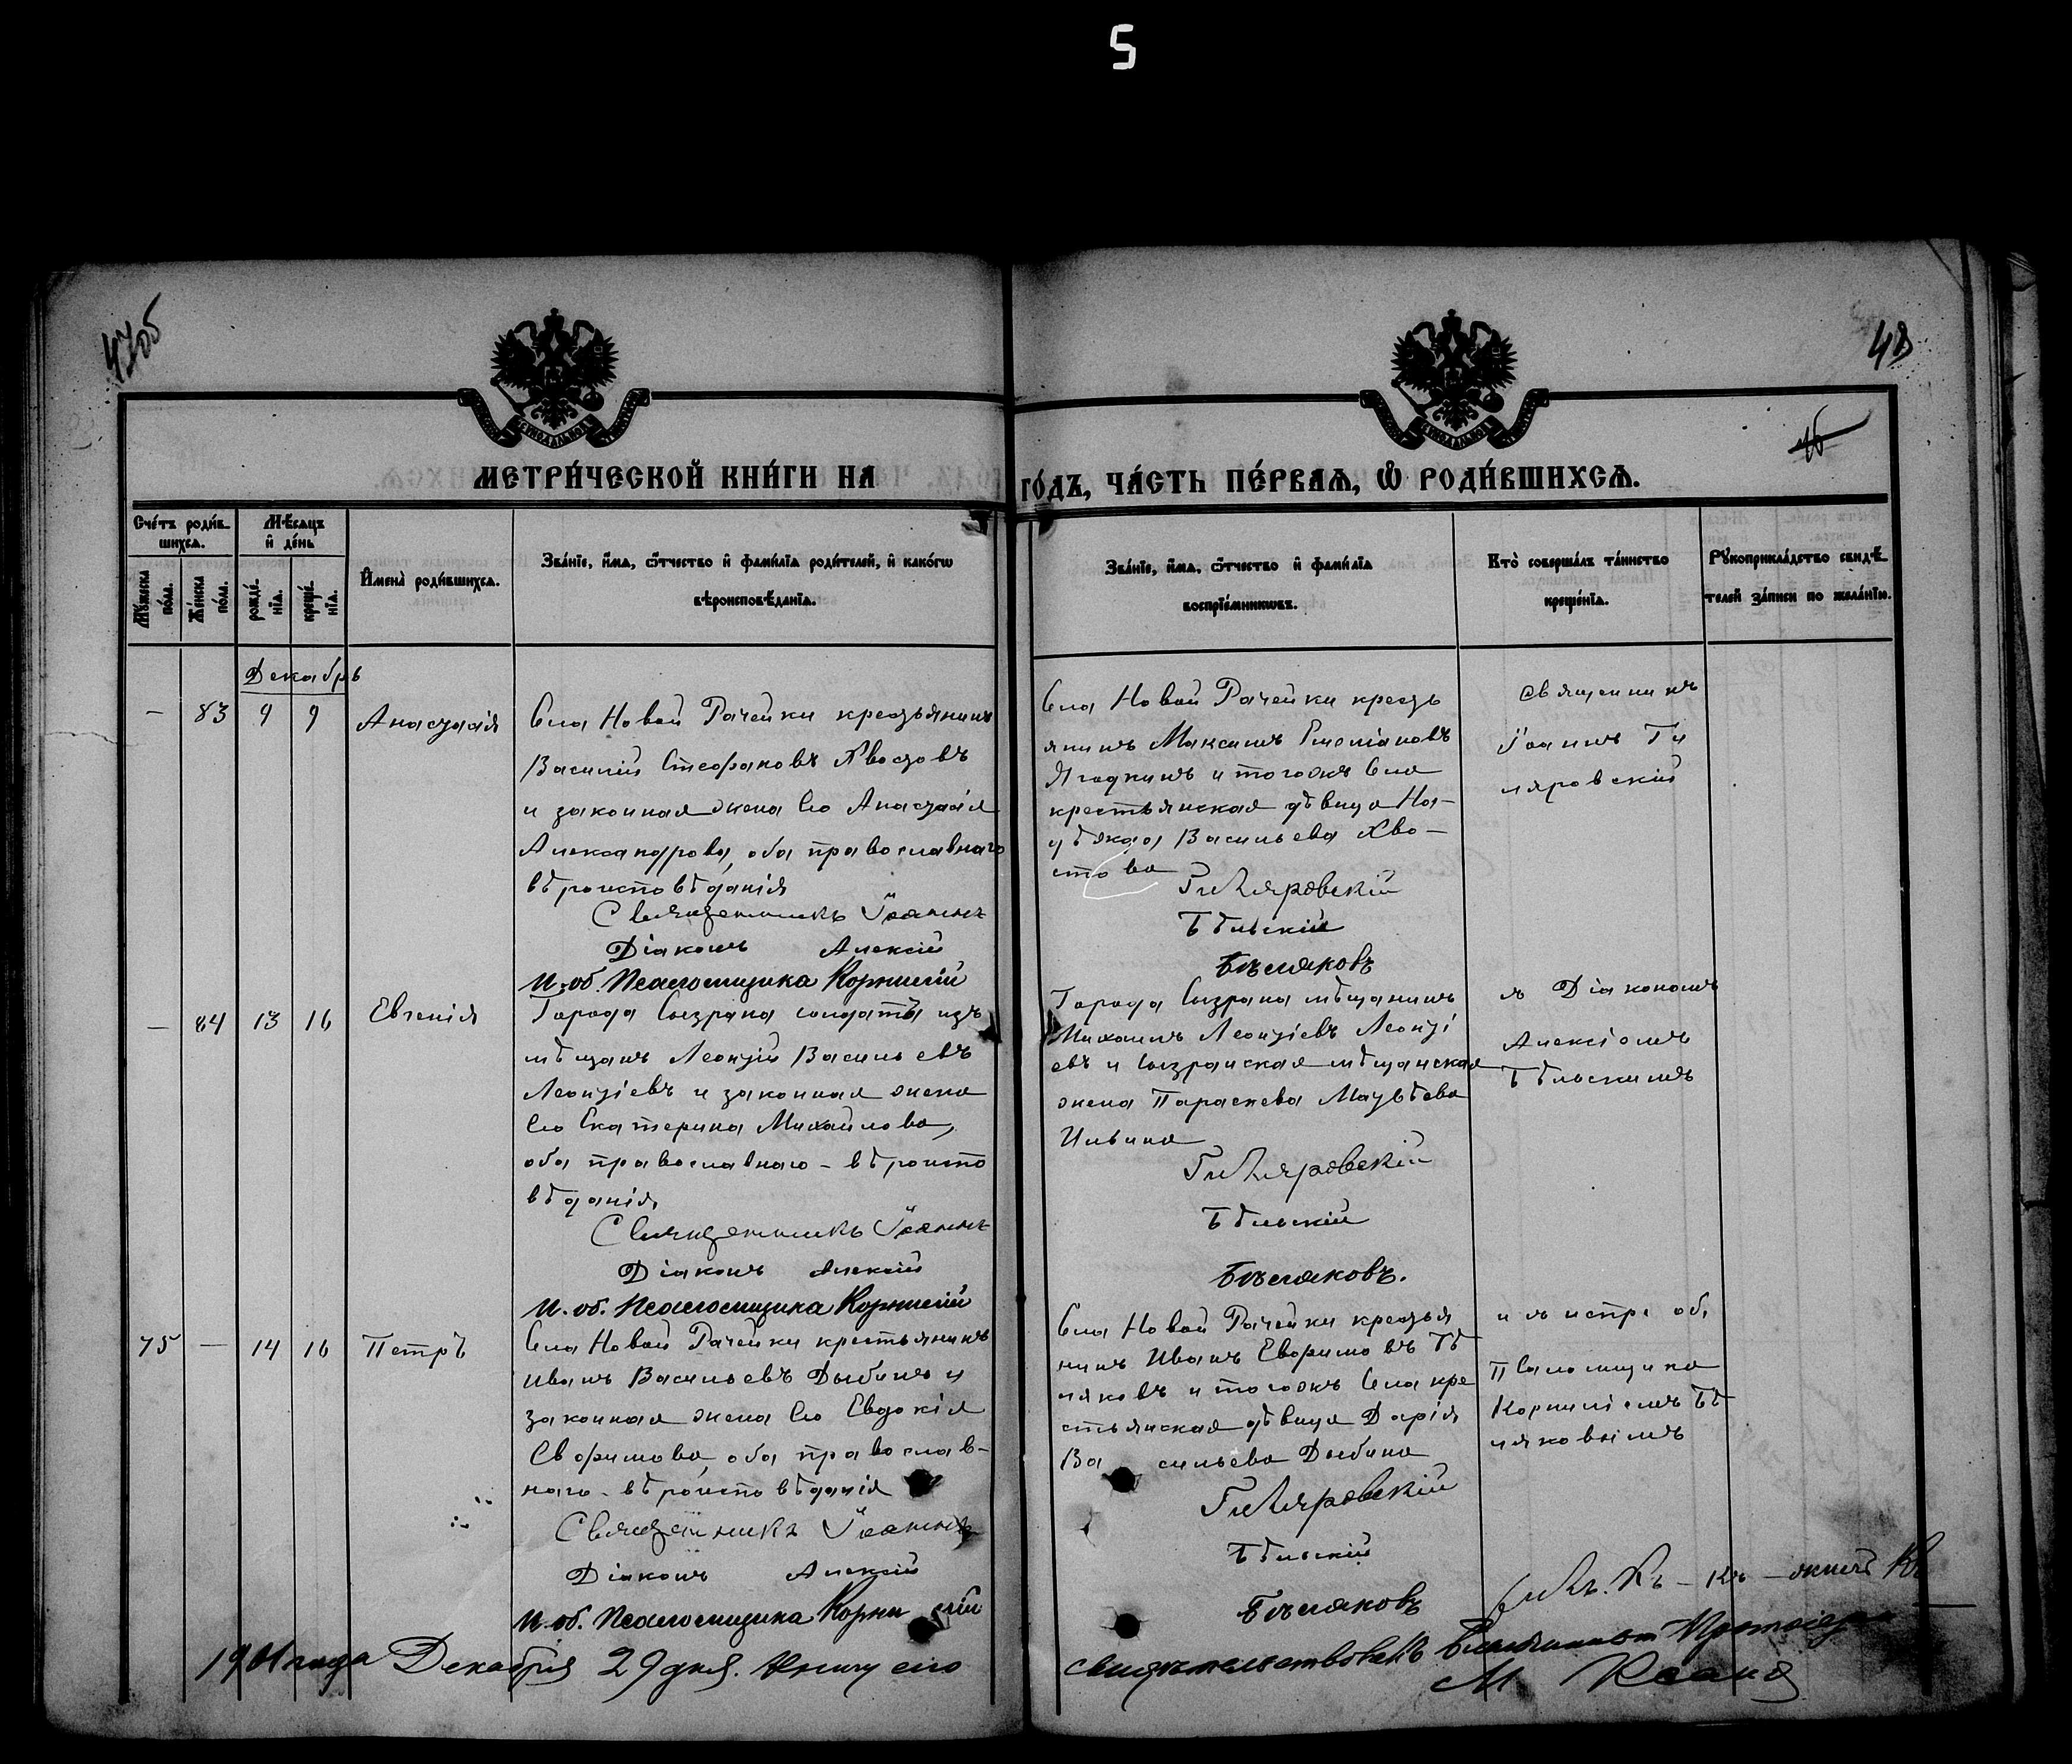 5
47об
48
МЕТРИ́ЧЕСКОЙ КНИ́ГИ НА
ГО́ДЪ, ЧА́СТЬ ПЕ́РВАѦ, Ѽ РОДИ́ВШИХСѦ.
Сче́тъ роди́в-
шихсѧ.
Мꙋ́жеска по́ла.
Же́нска по́ла.
Мѣ́сѧцъ
и҆ де́нь
рожде́-
нїѧ.
креще́-
нїѧ.
И҆мена̀ роди́вшихсѧ.
Зва́нїе, и҆́мѧ, ѻ҆́тчество и҆ фами́лїѧ роди́телей, и҆ како́гѡ
вѣроисповѣ́данїѧ.
Зва́нїе, и҆́мѧ, ѻ҆́тчество и҆ фами́лїѧ
воспрїе́мникѡвъ.
Кто̀ соверша́лъ та́инство
креще́нїѧ.
Рꙋкоприкла́дство свидѣ́-
телей за́писи по жела́нїю.
Декабрь
— 83 9 9 Анастасія
Села Новой Рачейки крестьянинъ
Василій Стефановъ Хвостовъ
и законная жена его Анастасія
Александрова, оба православнаго
вѣроисповѣданія
Священникъ Іоаннъ
Діаконъ Алексій
И. об. Псаломщика Корнилій
Села Новой Рачейки кресть
янинъ Максимъ Емеліановъ
Ягодкинъ и тогожъ села
крестьянская дѣвица На-
дѣжда Васильева Хво-
стова
Гиляровскій
Бѣльскій
Бѣляковъ
Священникъ
Іоаннъ Ги
ляровскій
— 84 13 16 Евгенія
Города Сызрана солдатъ изъ
мѣщанъ Леонтій Васильевъ
Леонтіевъ и законная жена
его Екатерина Михайлова,
оба православнаго - вѣроиспо
вѣданія,
Священникъ Іоаннъ
Діаконъ Алексій
И. об. Псаломщика Корнилій
Города Сызрана мѣщанинъ
Михаилъ Леонтіевъ Леонті
евъ и Сызранская мѣщанская
жена Параскева Матвѣева
Ильина
Гиляровскій
Бѣльскій
Бѣляковъ.
съ Діакономъ
Алексіемъ
Бѣльскимъ
75 — 14 16 Петръ
Села Новой Рачейки крестьянинъ
Иванъ Васильевъ Дыбинъ и
законная жена его Евдокія
Евфимова, оба православ-
наго - вѣроисповѣданія
Священникъ Іоаннъ
Діаконъ Алексій
И. об. Псаломщика Корнилій
Села Новой Рачейки крестья
нинъ Иванъ Евфимовъ Бѣ
ляковъ и тогожъ села кре
стьянская дѣвица Дарія
Васильева Дыбина
Гиляровскій
Бѣльскій
Бѣляковъ
и съ испр. об.
Псаломщика
Корниліемъ Бѣ
ляковымъ
1901 года Декабря 29 дня. Книгу сію
свидѣтельствовалъ Благочинный Протоіерей